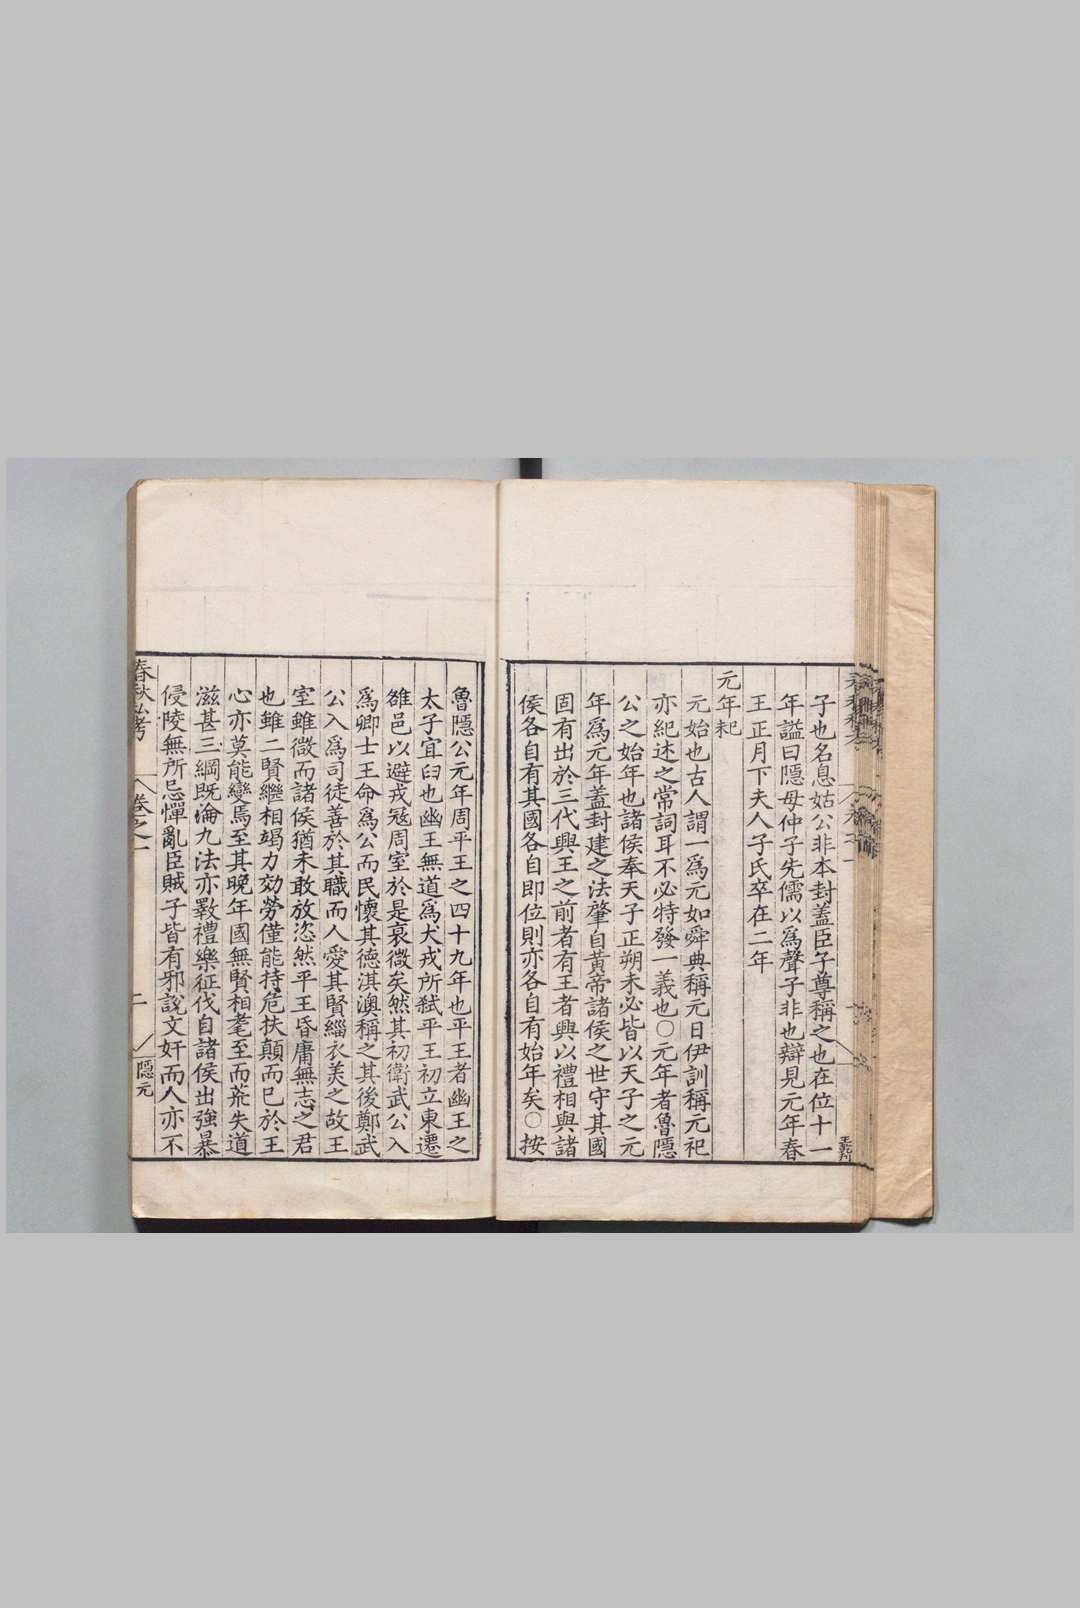 子也名息姑公非本封蓋臣子尊稱之也在位十一
年謚曰隱母仲子先儒以爲聲子非也辯見元年春
王正月下夫人子氏卒在二年
元年
元始也古人謂一爲元如舜典稱元日伊訓稱元祀
亦紀述之常詞耳不必特發一義也○元年者魯隱
公之始年也諸侯奉天子正朔未必皆以天子之元
年爲元年蓋封建之法肇自黃帝諸侯之世守其國
固有出於三代興王之前者有王者興以禮相與諸
侯各自有其國各自即位則亦各自有始年矣○按
魯隱公元年周平王之四十九年也平王者幽王之
太子宜臼也幽王無道爲犬戎所弒平王初立東遷
雒邑以避戎寇周室於是衰微矣然其初衛武公入
爲卿士王命爲公而民懷其德淇澳稱之其後鄭武
公入爲司徒善於其職而人愛其賢緇衣美之故王
室雖微而諸侯猶未敢放恣然平王昏庸無志之君
也雖二賢繼相竭力効勞僅能持危扶顛而已於王
心亦莫能變焉至其晚年國無賢相耄至而荒失道
滋甚三綱既淪九法亦斁禮樂征伐自諸侯出強暴
侵陵無所忌憚亂臣賊子皆有邪說文奸而人亦不
春秋私考
卷之一
二
隱元